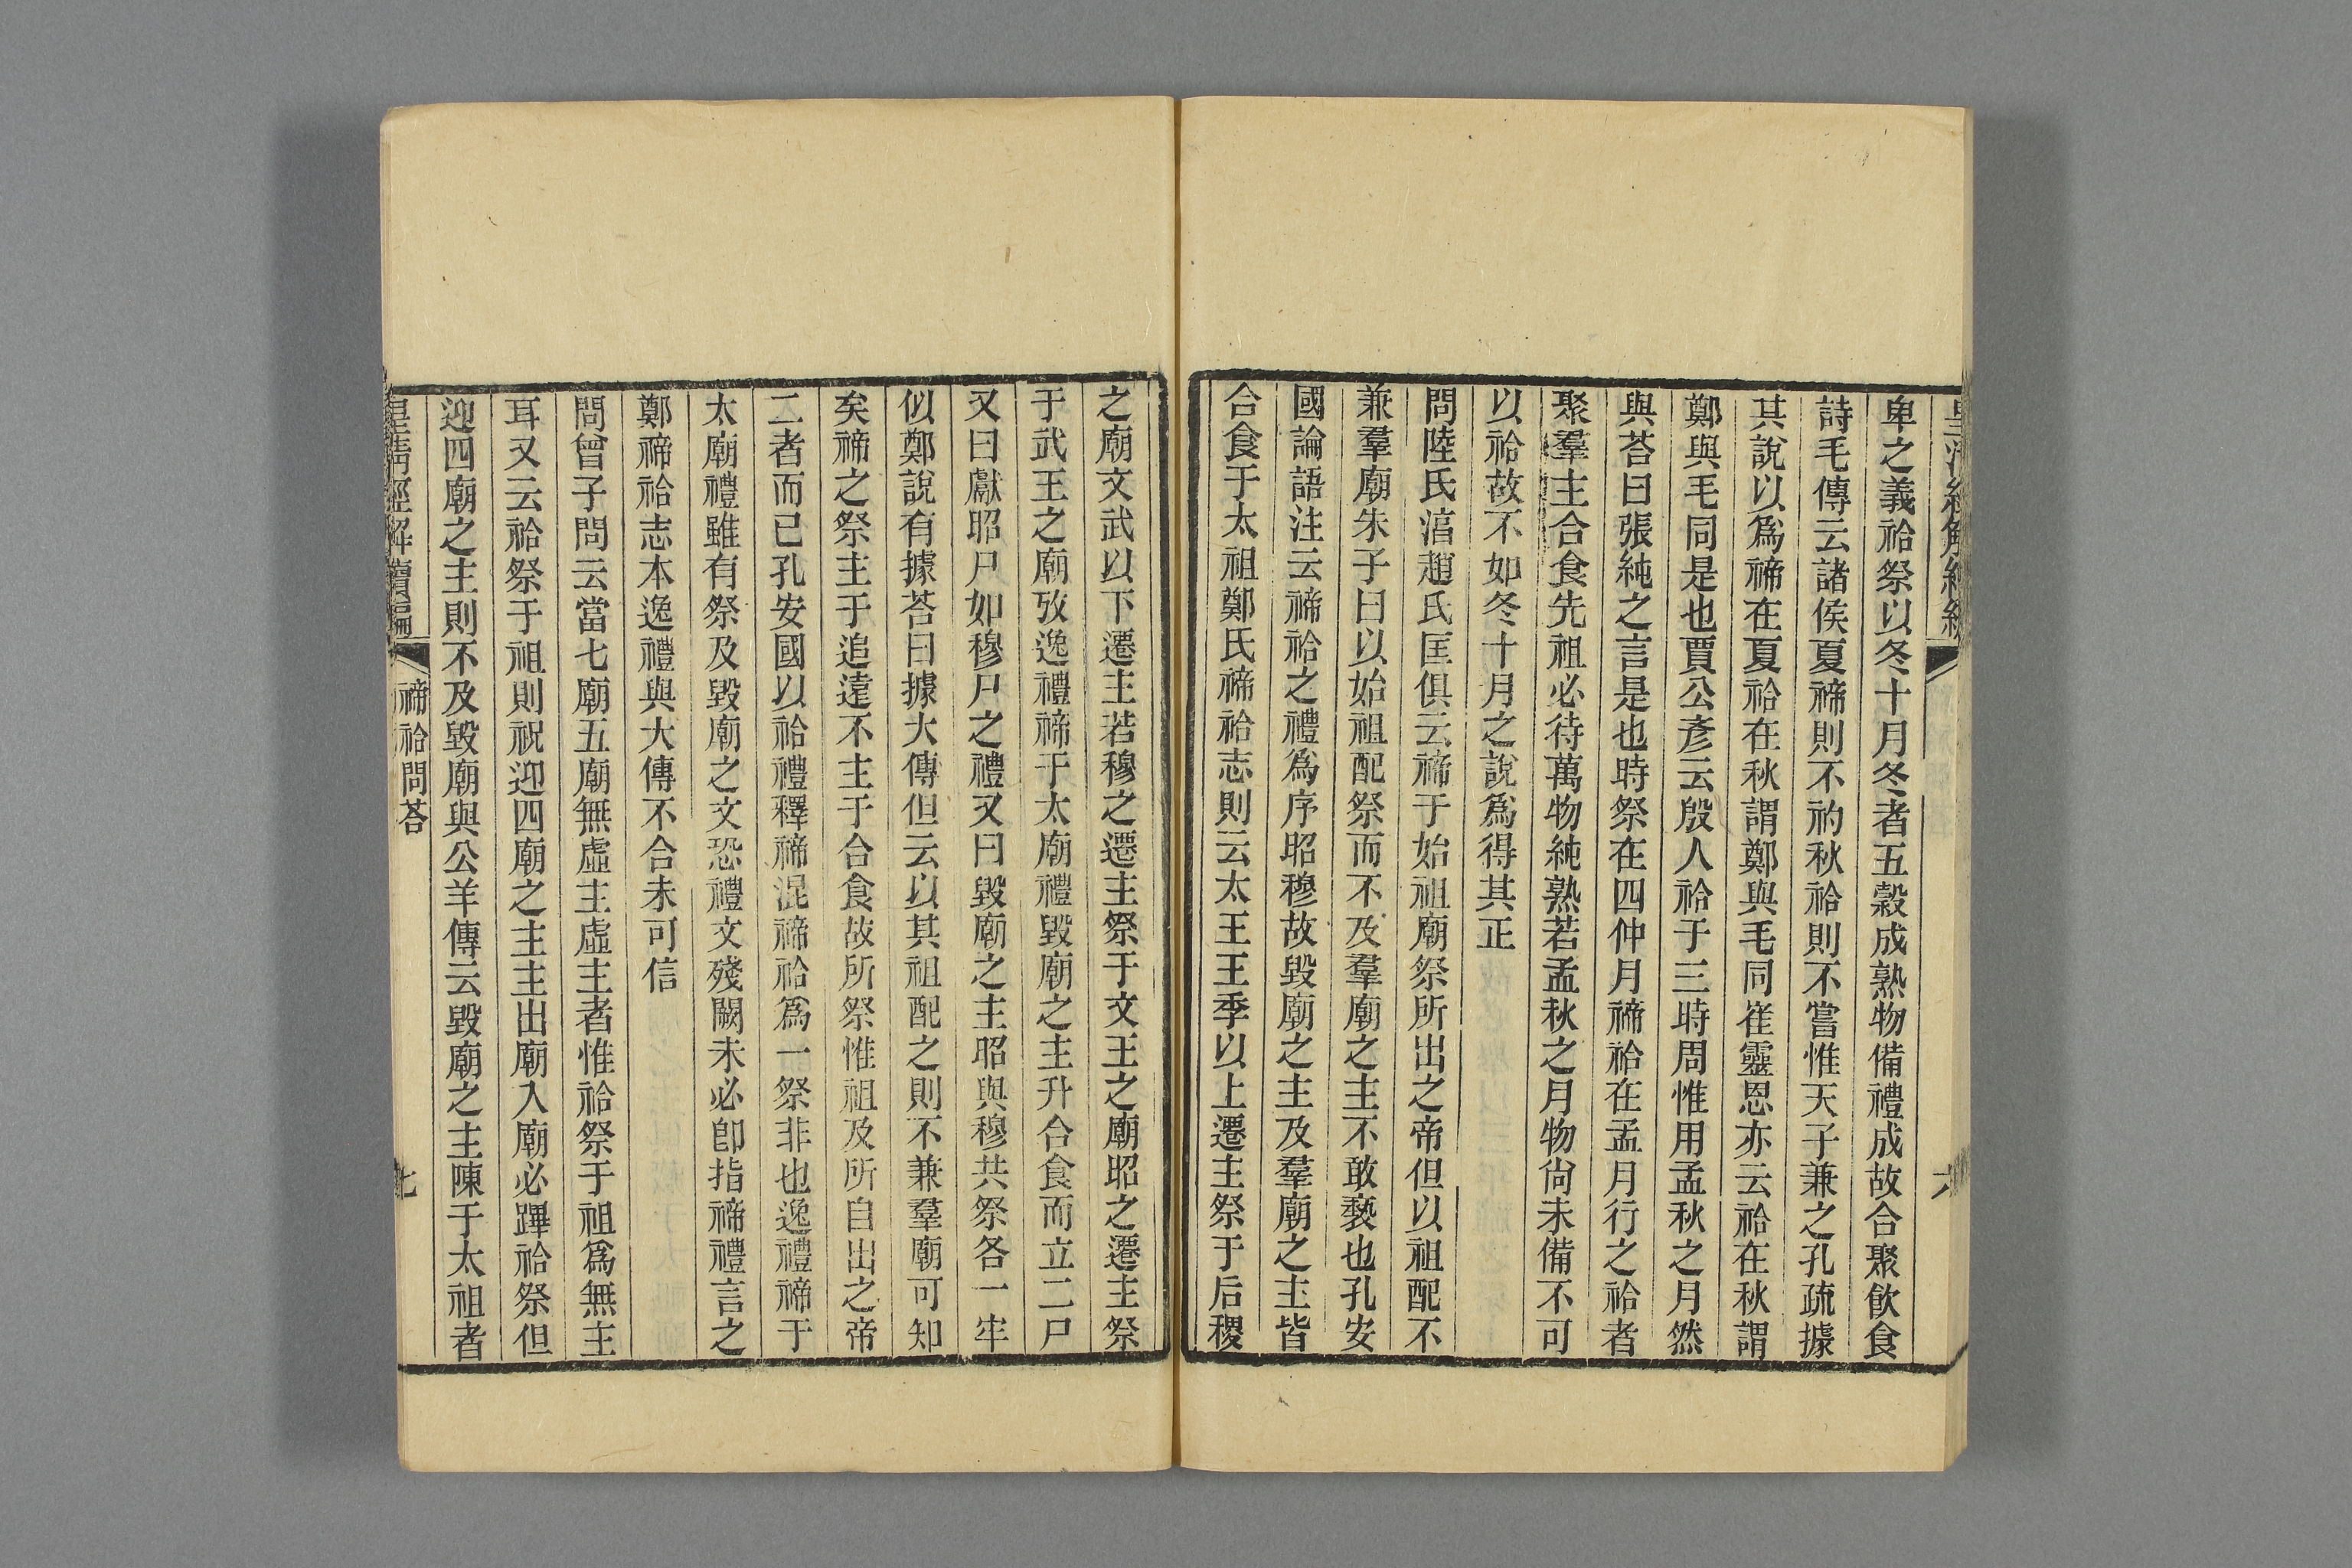 皇清經解續編
六
卑之義祫祭以冬十月冬者五穀成熟物備禮成故合聚飲食
詩毛傳云諸侯夏禘則不礿秋祫則不嘗惟天子兼之孔疏據
其說以爲禘在夏祫在秋謂鄭與毛同崔靈恩亦云祫在秋謂
鄭與毛同是也賈公彥云殷人祫于三時周惟用孟秋之月然
與荅曰張純之言是也時祭在四仲月禘祫在孟月行之祫者
聚羣主合食先祖必待萬物純熟若孟秋之月物尙未備不可
以祫故不如冬十月之說爲得其正
問陸氏淳趙氏匡俱云禘于始祖廟祭所出之帝但以祖配不
兼羣廟朱子曰以始祖配祭而不及羣廟之主不敢褻也孔安
國論語注云禘祫之禮爲序昭穆故毀廟之主及羣廟之主皆
合食于太祖鄭氏禘祫志則云太王王季以上遷主祭于后稷
之廟文武以下遷主若穆之遷主祭于文王之廟昭之遷主祭
于武王之廟攷逸禮禘于太廟禮毀廟之主升合食而立二尸
又曰獻昭尸如穆尸之禮又曰毀廟之主昭與穆共祭各一牢
似鄭說有據荅曰據大傳但云以其祖配之則不兼羣廟可知
矣禘之祭主于追遠不主于合食故所祭惟祖及所自出之帝
二者而已孔安國以祫禮釋禘混禘祫爲一祭非也逸禮禘于
太廟禮雖有祭及毀廟之文恐禮文殘闕未必卽指禘禮言之
鄭禘祫志本逸禮與大傳不合未可信
問曾子問云當七廟五廟無虛主虛主者惟祫祭于祖爲無主
耳又云祫祭于祖則祝迎四廟之主主出廟入廟必蹕祫祭但
迎四廟之主則不及毀廟與公羊傳云毀廟之主陳于太祖者
皇清經解續編
禘祫問荅
七